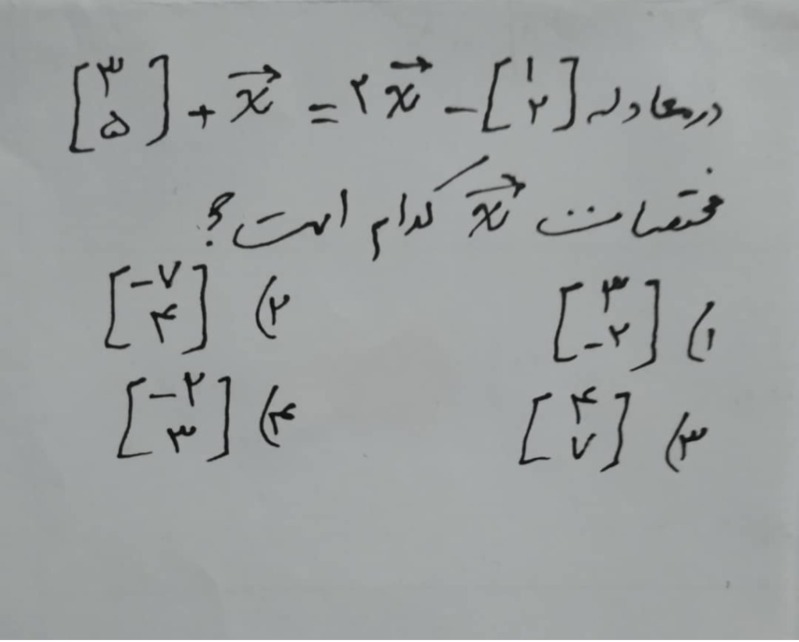 در معادله [۳ ۵] + x⃗ = ۲x⃗ - [۱ ۲]
مختصات x⃗ کدام است؟
۱) [۳ -۲] ۲) [-۷ ۴]
۳) [۴ ۷] ۴) [-۲ ۳]